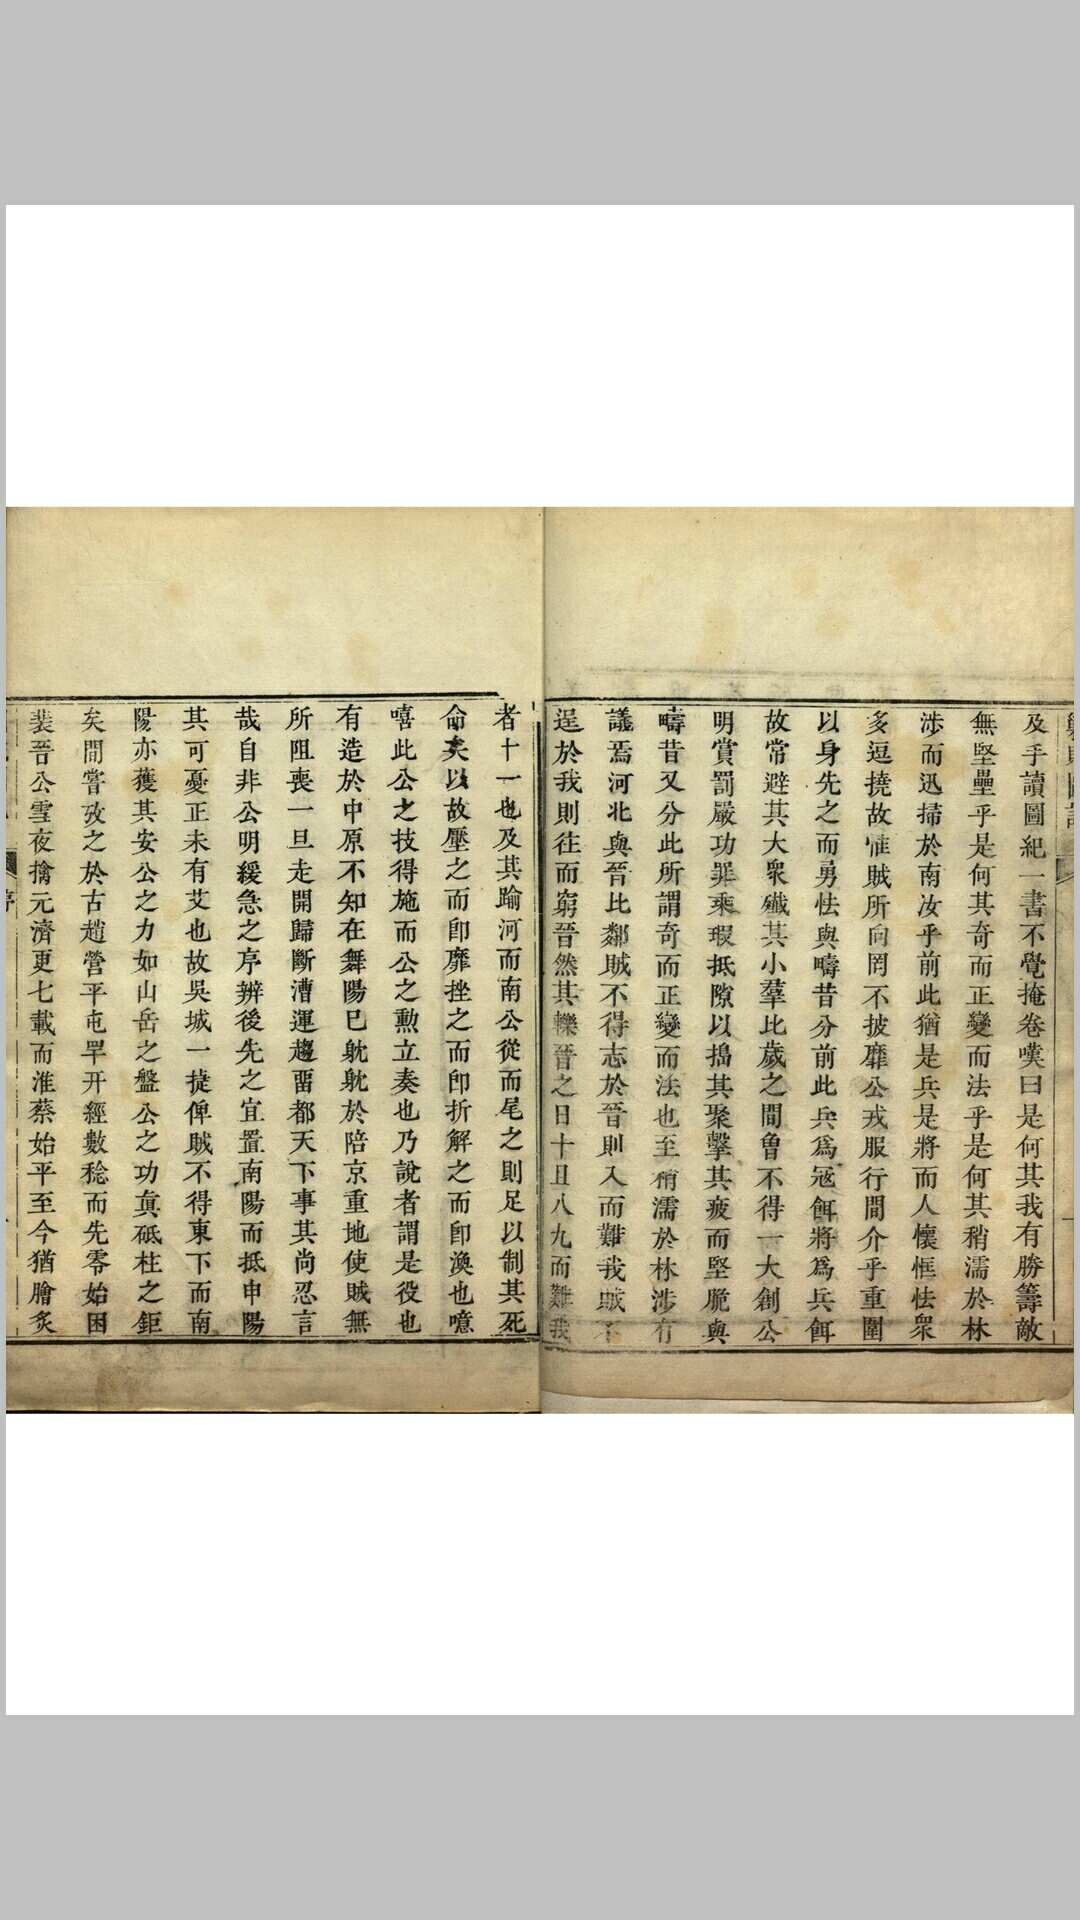 及乎讀圖紀一書不覺掩卷嘆曰是何其我有勝籌敵
無堅壘乎是何其奇而正變而法乎是何其稍濡於林
涉而迅掃於南汝乎前此猶是兵是將而人懷恇怯衆
多逗撓故惟賊所向罔不披靡公戎服行間介乎重圍
以身先之而勇怯與疇昔分前此兵爲冦餌將爲兵餌
故常避其大衆殲其小羣比歲之間曾不得一大創公
明賞罰嚴功罪乘瑕抵隙以搗其聚擊其疲而堅脆與
疇昔又分此所謂奇而正變而法也至稍濡於林涉有
議焉河北與晉比鄰賊不得志於晉則入而難我賊不
逞於我則往而窮晉然其轢晉之日十且八九而難我
者十一也及其踰河而南公從而尾之則足以制其死
命矣以故壓之而卽靡挫之而卽折解之而卽渙也噫
嘻此公之技得施而公之勳立奏也乃說者謂是役也
有造於中原不知在舞陽巳躭躭於陪京重地使賊無
所阻喪一旦走開歸斷漕運趨畱都天下事其尚忍言
哉自非公明緩急之序辨後先之宜置南陽而抵申陽
其可憂正未有艾也故吳城一捷俾賊不得東下而南
陽亦獲其安公之力如山岳之盤公之功眞砥柱之鉅
矣間嘗攷之於古趙營平屯䍐幵經數稔而先零始困
裴晉公雪夜擒元濟更七載而淮蔡始平至今猶膾炙
序